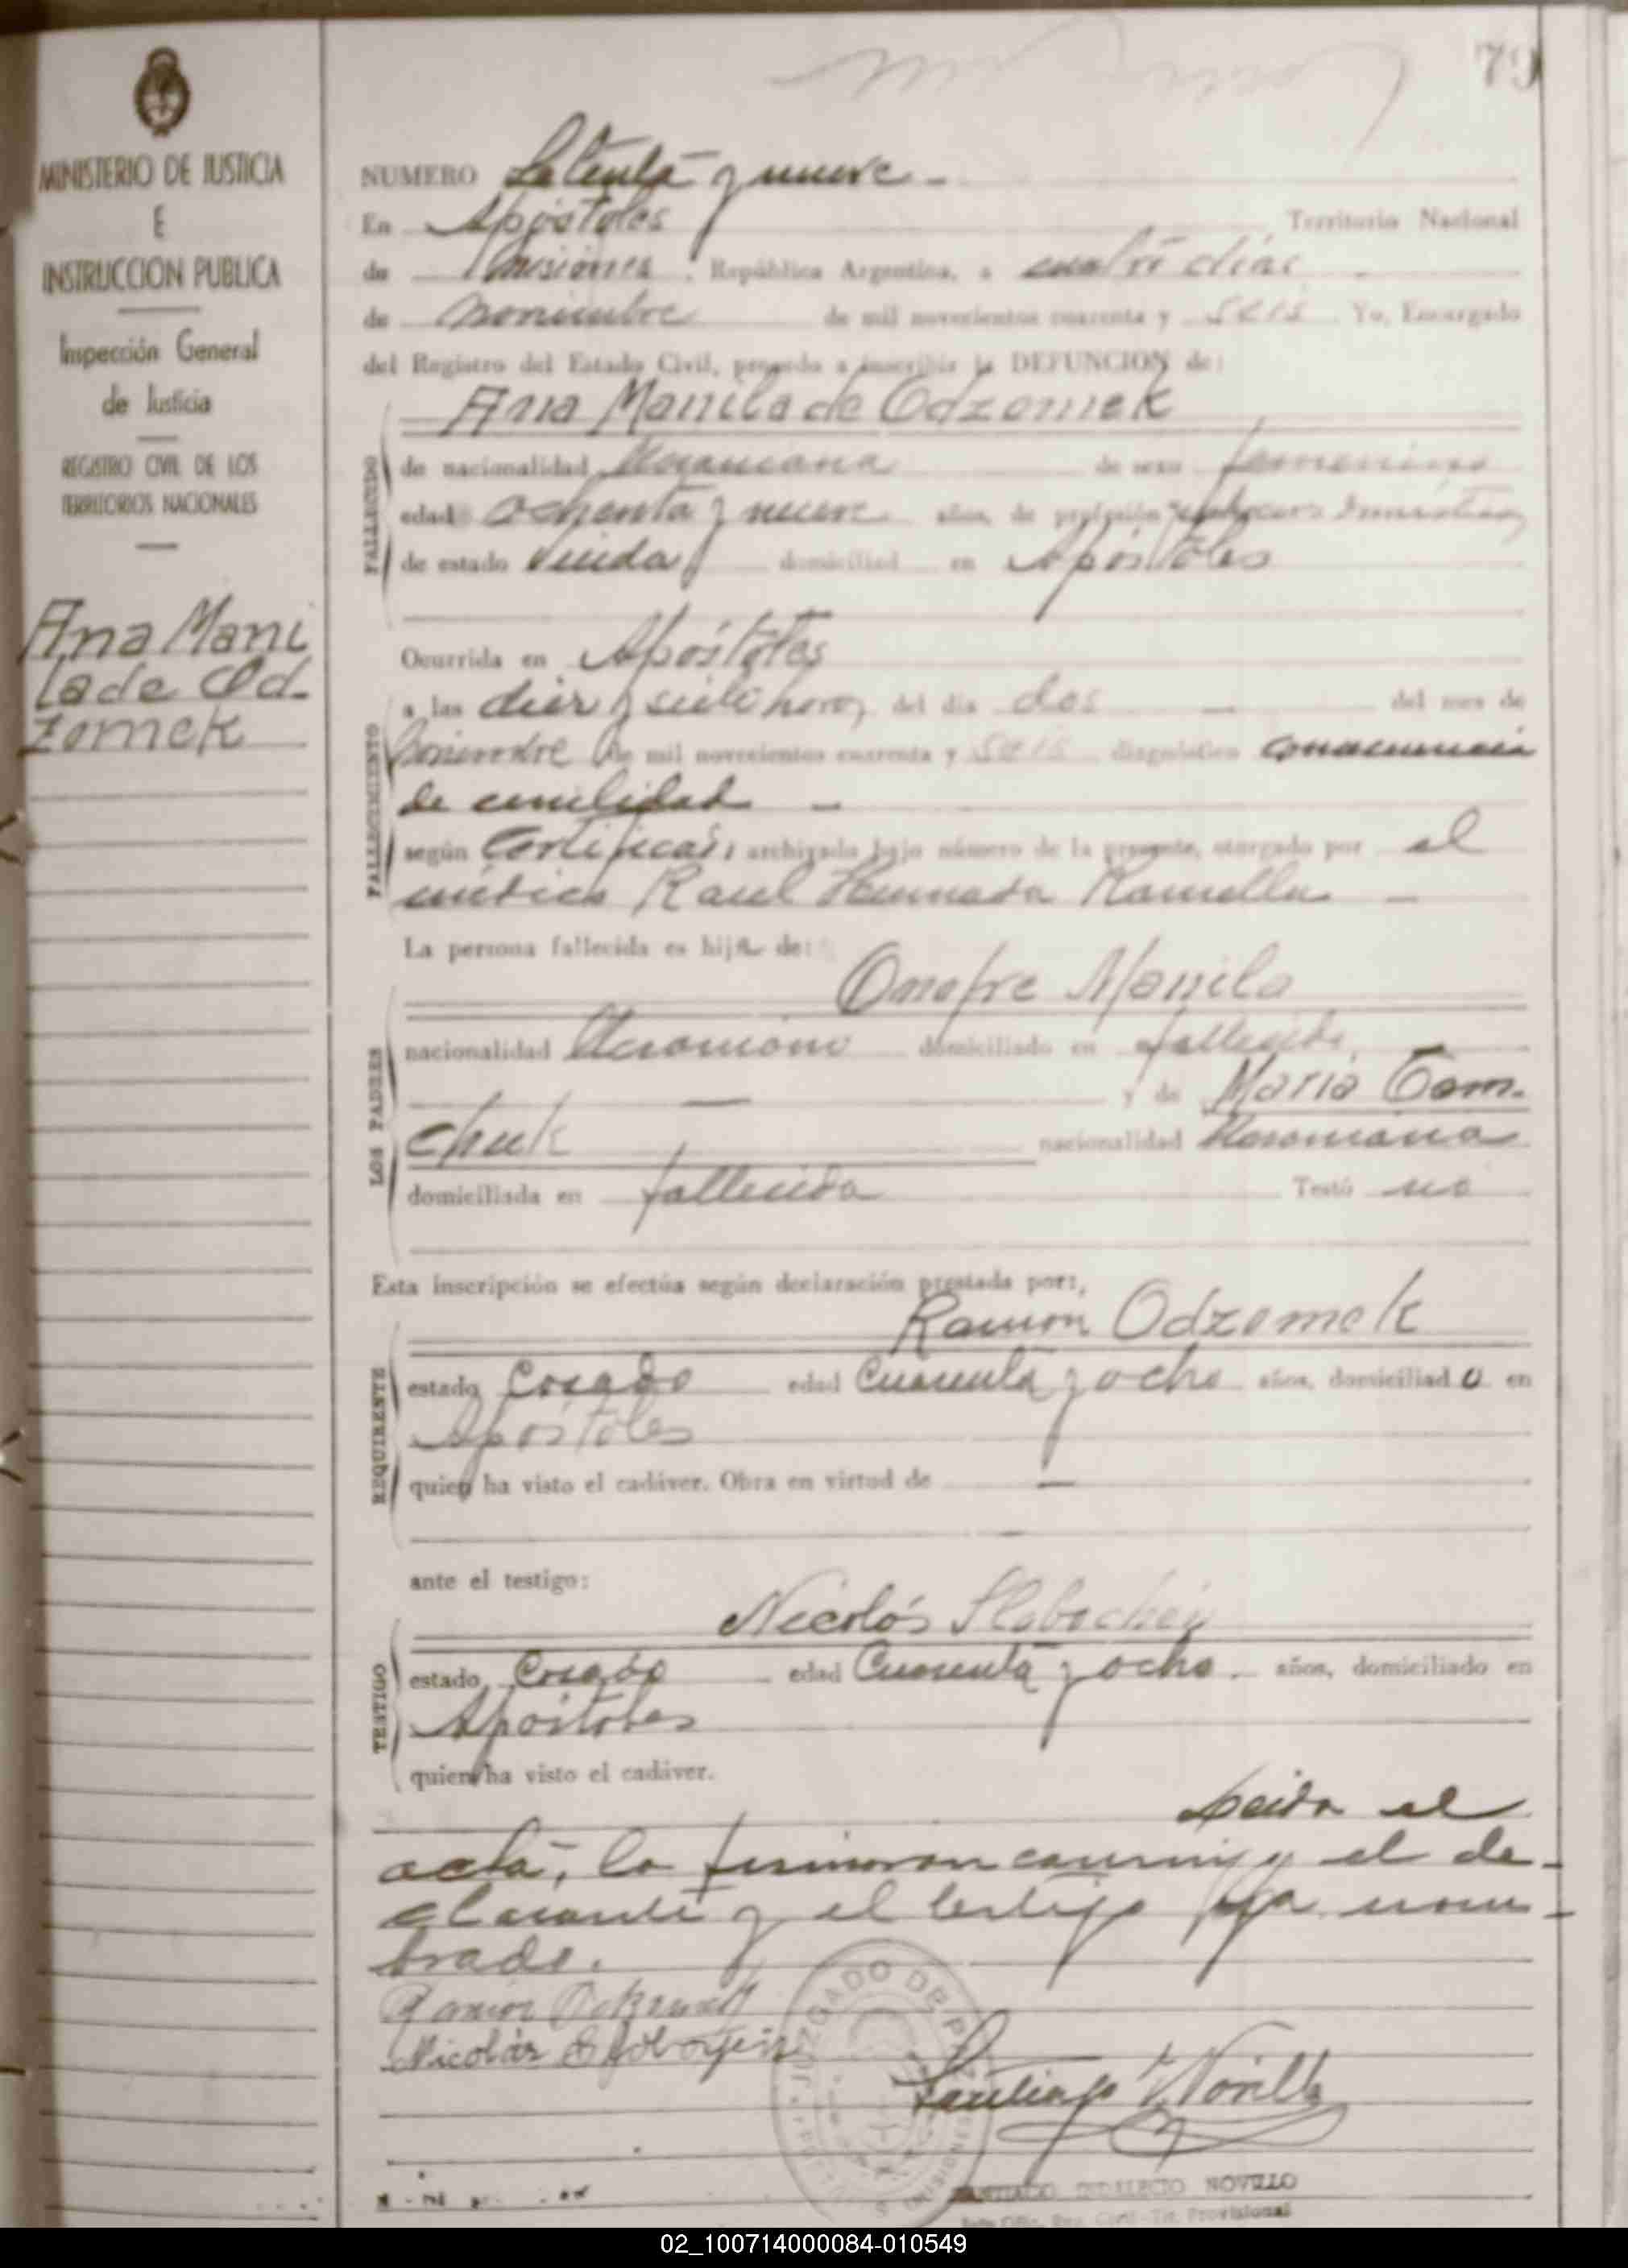 79
MINISTERIO DE JUSTICIA
E
INSTRUCCION PUBLICA
Inspección General
de Justicia
REGISTRO CIVIL DE LOS
TERRITORIOS NACIONALES
Ana Mani
la de Od-
zomek
NUMERO Setenta y nueve -
En Apóstoles Territorio Nacional
de Misiones, República Argentina, a cuatro días
de noviembre de mil novecientos cuarenta y seis Yo, Encargado
del Registro del Estado Civil, procedo a inscribir la DEFUNCION de:
Ana Manila de Odzomek
FALLECIDO
de nacionalidad Ucraniana de sexo femenino
edad ochenta y nueve años, de profesión
de estado viuda domiciliad en Apóstoles
Ocurrida en Apóstoles
FALLECIMIENTO
a las diez y siete horas del día dos — del mes de
Noviembre de mil novecientos cuarenta y seis diagnóstico
de cenilidad -
según certificado, archivado bajo número de la presente, otorgado por el
médico Raul Ramella -
La persona fallecida es hija de:
Onofre Manila
LOS PADRES
nacionalidad Ucraniano domiciliado en fallecido,
— y de María Tom-
chuk nacionalidad Ucraniana
domiciliada en fallecida Testó no
Esta inscripción se efectúa según declaración prestada por:,
Ramon Odzomek
REQUIRENTE
estado Casado edad Cuarenta y ocho años, domiciliado en
Apóstoles
quien ha visto el cadáver. Obra en virtud de —
ante el testigo:
Nicolás
TESTIGO
estado Casado edad Cuarenta y ocho - años, domiciliado en
Apóstoles
quien ha visto el cadáver.
Leida el
acta, la firmaron conmigo el de-
clarante y el testigo ya nom-
brado.
Ramón
Nicolás
JUZGADO DE PAZ
Santiago I Novillo
SANTIAGO INDALECIO NOVILLO
Jefe Ofic. Reg. Civil - Tit. Provisional
02_100714000084-010549